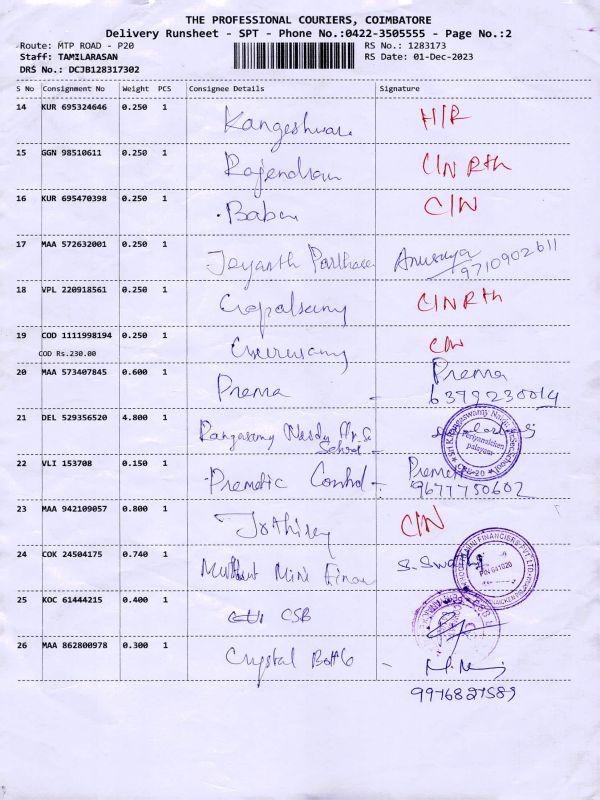 THE PROFESSIONAL COURIERS, COIMBATORE
Delivery Runsheet - SPT - Phone No.:0422-3505555 - Page No.:2
Route: MTP ROAD - P20 RS No.: 1283173
Staff: TAMILARASAN RS Date: 01-Dec-2023
DRS No.: DCJB128317302
S No Consignment No Weight PCS Consignee Details Signature
14 KUR 695324646 0.250 1 Kangeshwar H/R
15 GGN 98510611 0.250 1 Rajendran C/N Rth
16 KUR 695470398 0.250 1 Babu C/N
17 MAA 572632001 0.250 1 Jeyanth Anusuya
9710902611
18 VPL 220918561 0.250 1 Gopalsamy C/N Rth
19 COD 1111998194 0.250 1 C/N
COD Rs.230.00
20 MAA 573407845 0.600 1 Prema - Prema
6379230014
21 DEL 529356520 4.800 1 Rangasamy
School
22 VLI 153708 0.150 1 Prematic Control -
9677750602
23 MAA 942109057 0.800 1 C/N
24 COK 24504175 0.740 1 Mini
PIN 641020
25 KOC 61444215 0.400 1 CSB
26 MAA 862800978 0.300 1 Crystal
9976827589